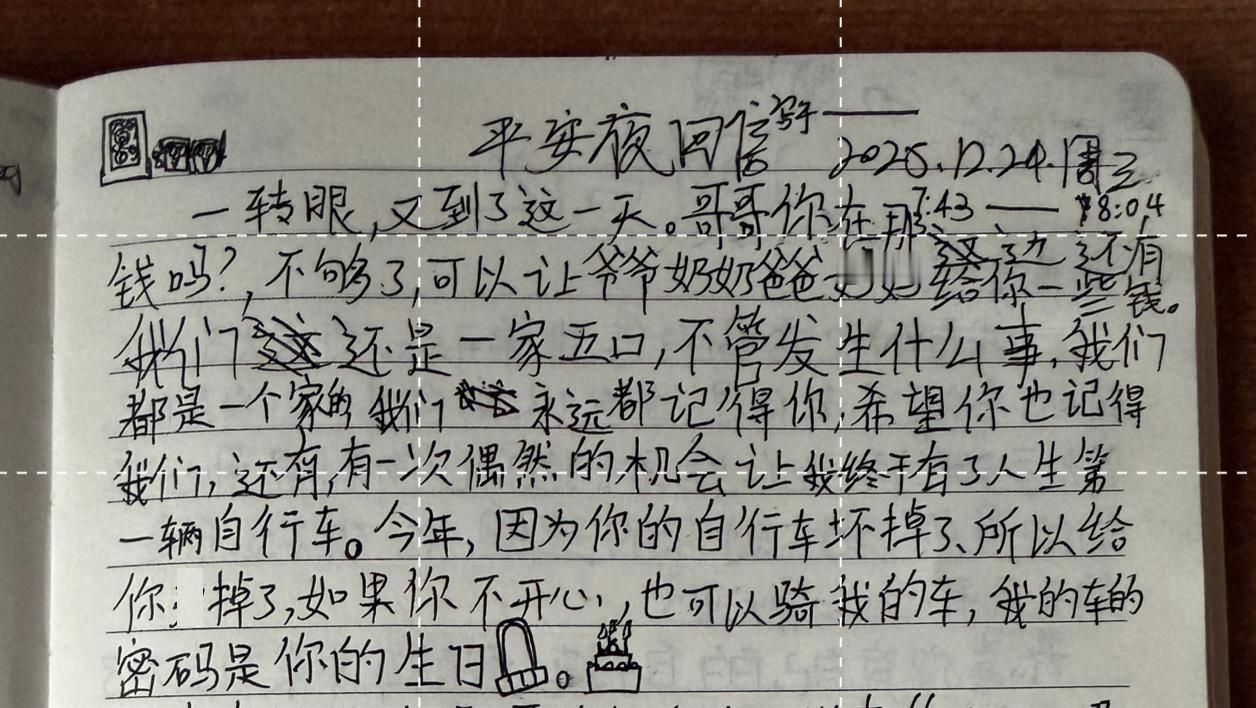 平安夜回信 写于——
2025.12.24.周三
7:43 —— 18:04
一转眼,又到了这一天。哥哥你在那边还有
钱吗?,不够了,可以让爷爷奶奶爸爸 给你一些钱。
我们还是一家五口,不管发生什么事,我们
都是一个家的 我们 永远都记得你,希望你也记得
我们,还有,有一次偶然的机会让我终于有了人生第
一辆自行车。今年,因为你的自行车坏掉了、所以给
你 掉了,如果你不开心,也可以骑我的车,我的车的
密码是你的生日。